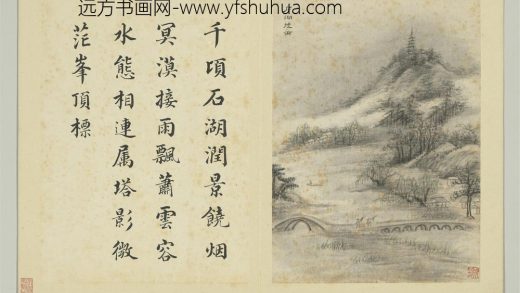 远方书画网-www.yfshuhua.com
千頃石湖潤景饒烟
冥漠接雨飄蕭雲容
水態相連属塔影微
茫峯頂標